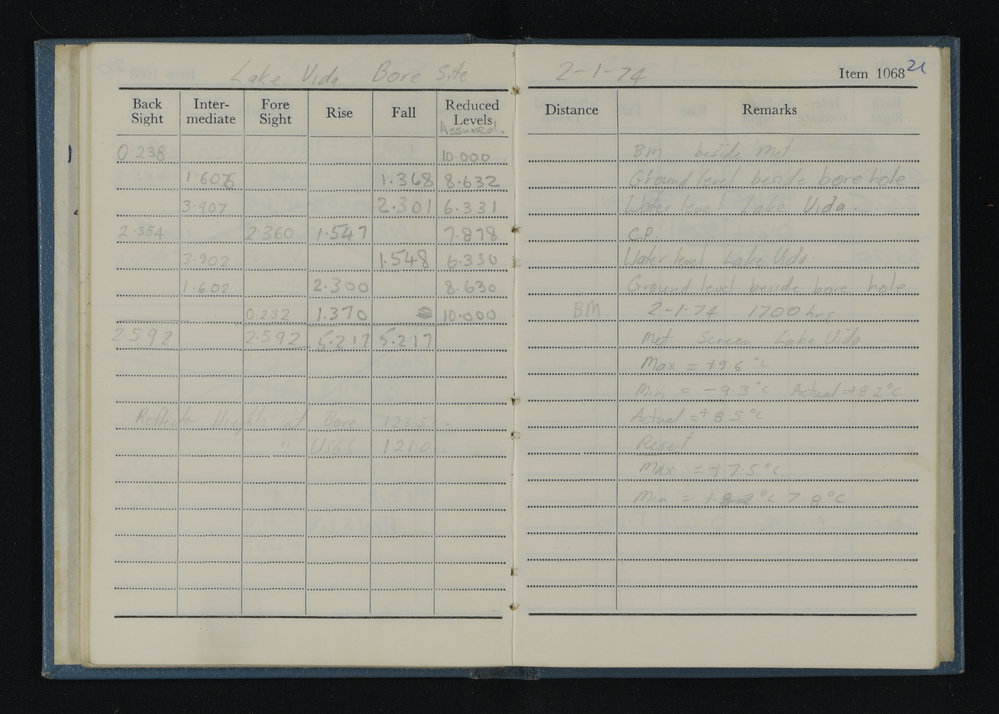 Lake Vida Bore Site 2-1-74 Item 1068 21
Back Sight Inter-mediate Fore Sight Rise Fall Reduced Levels Assumed. Distance Remarks
0.238 10.000 BM beside Met
1.606 1.368 8.632 Ground level beside bore hole
3.907 2.301 6.331 Water level Lake Vida.
2.354 2.360 1.547 7.878 C.P.
3.902 1.548 6.330 Water level Lake Vida
1.602 2.300 8.630 Ground level beside bore hole
0.232 1.370 10.000 BM 2-1-74 1700 hrs
2.592 2.592 5.217 5.217 Met Screen Lake Vida
Max = +9.6 °C
Min = -9.3 °C Actual +8.2 °C
Height at Bore 123.5 Actual = +8.5 °C
" USGS 121.0 Reset
Max = +7.5 °C
Min = + °C 7.8 °C